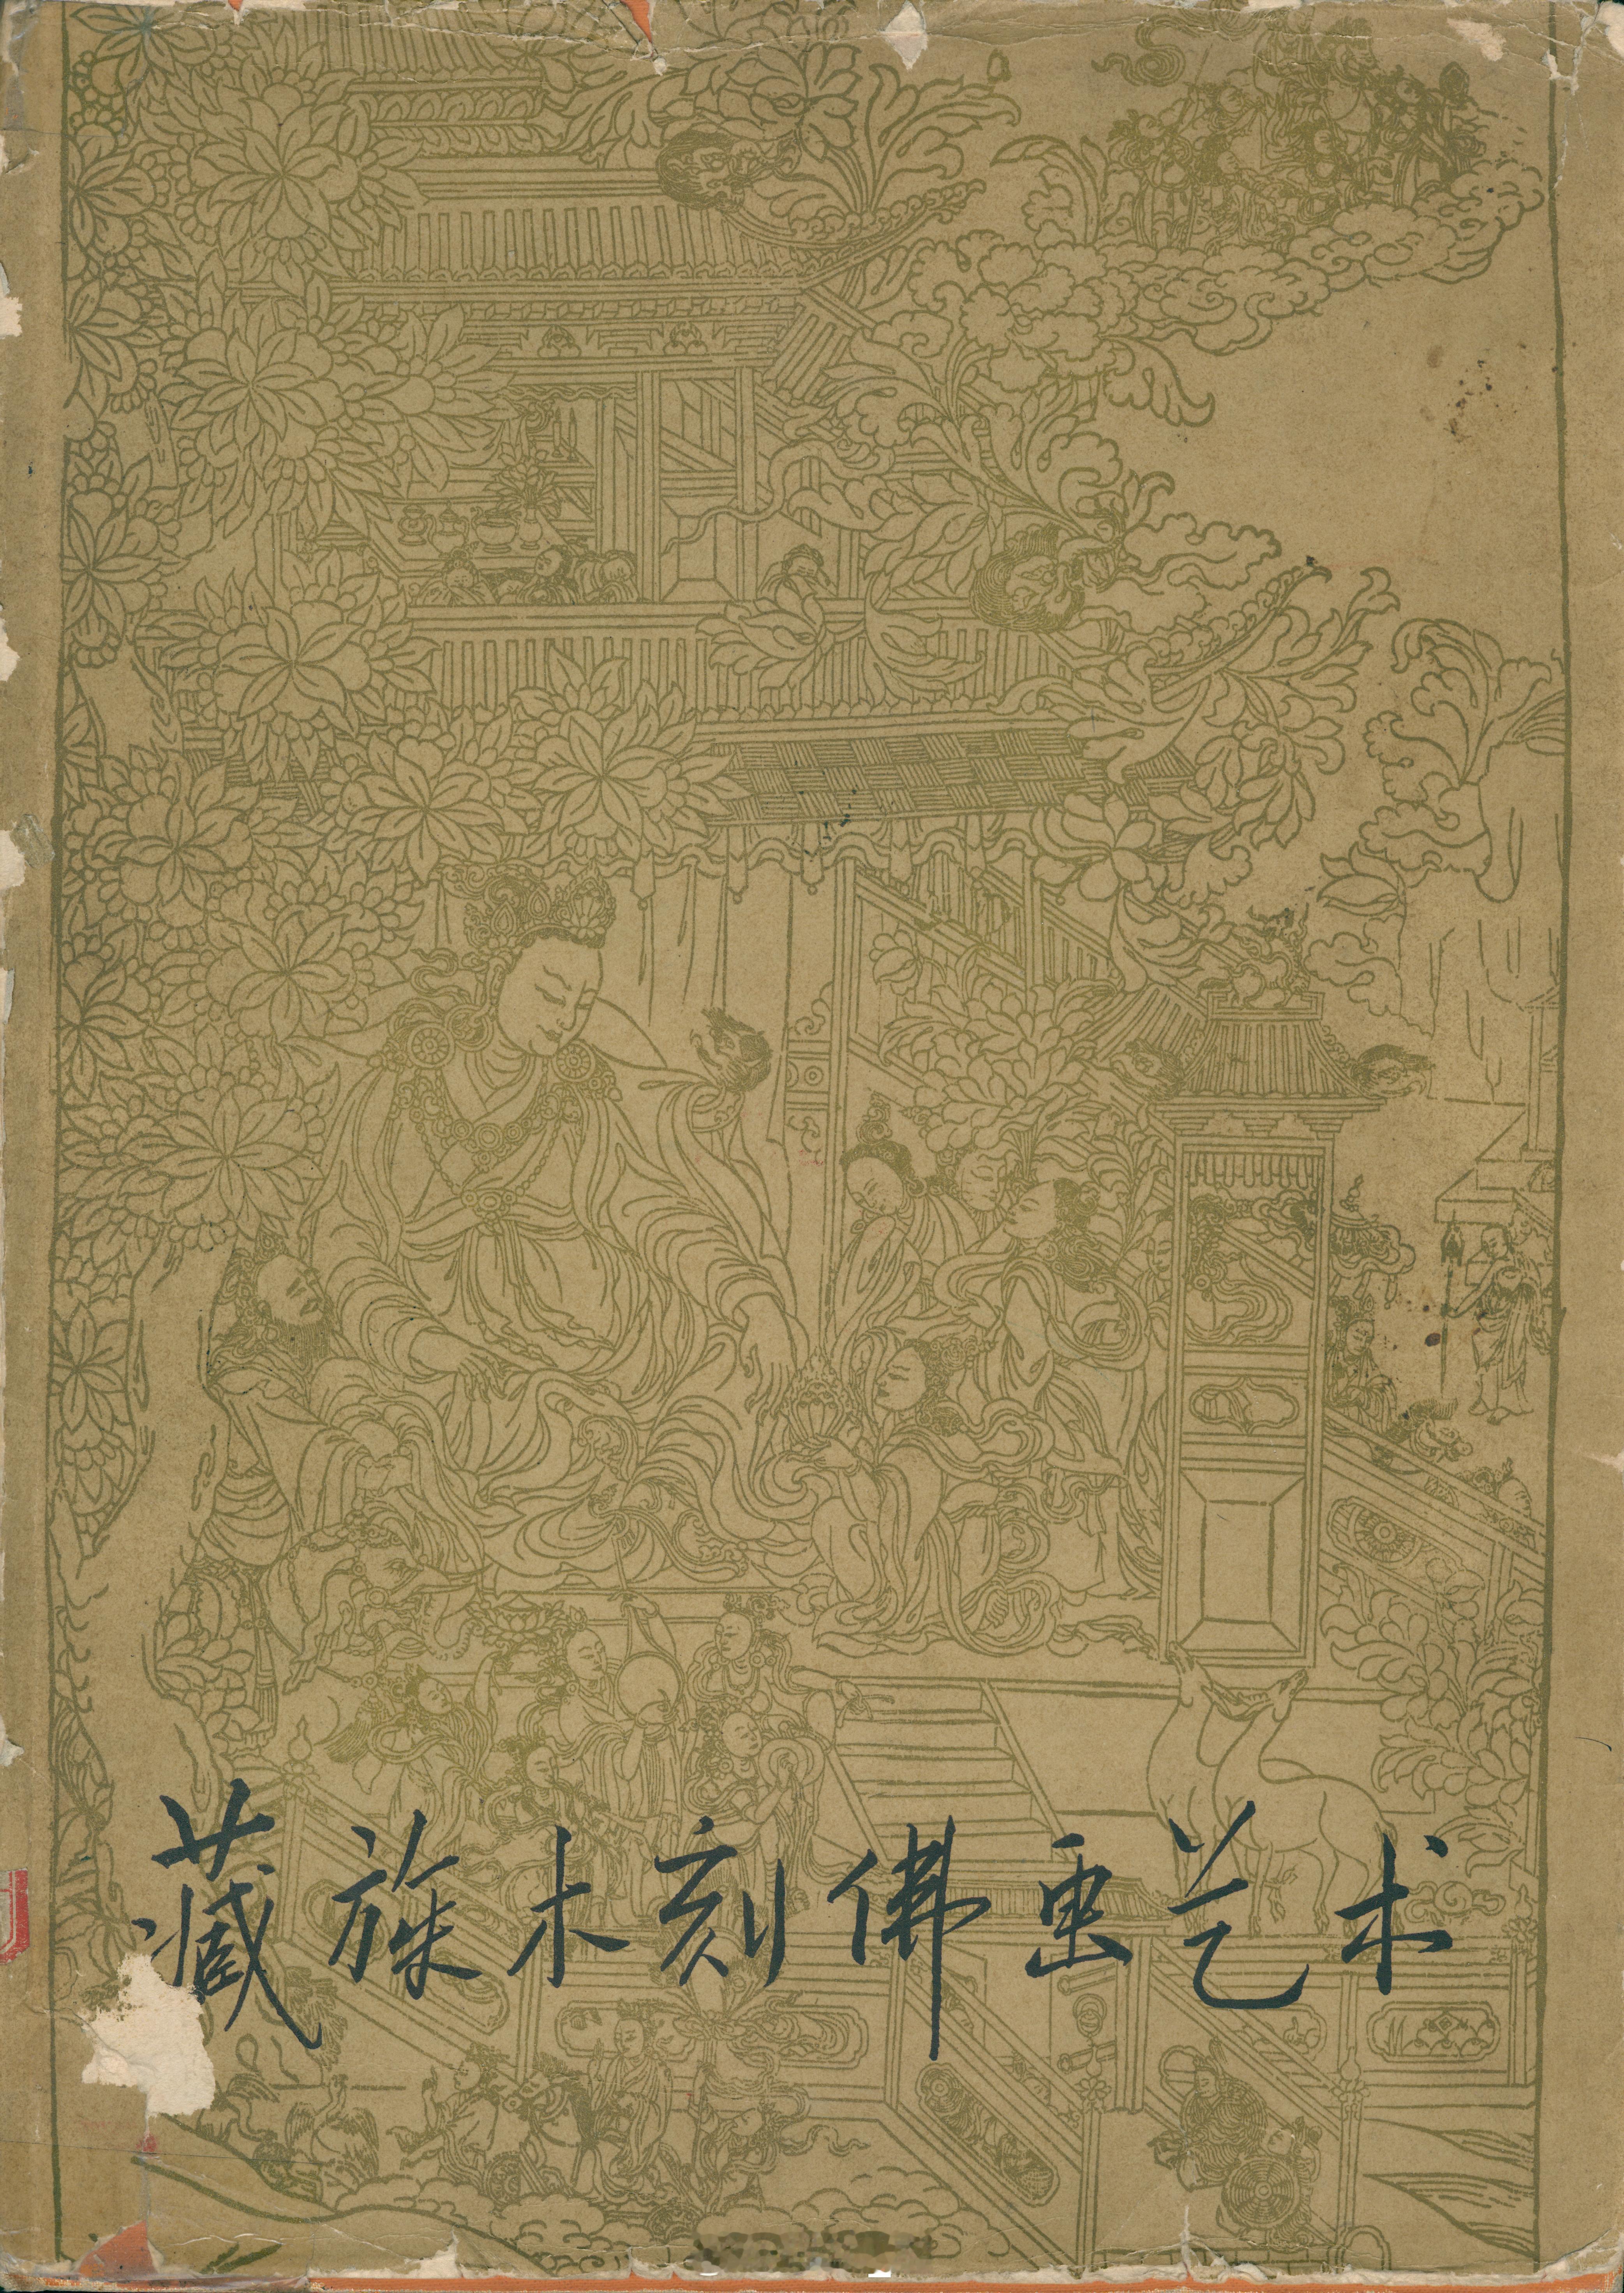 藏族木刻佛画艺术